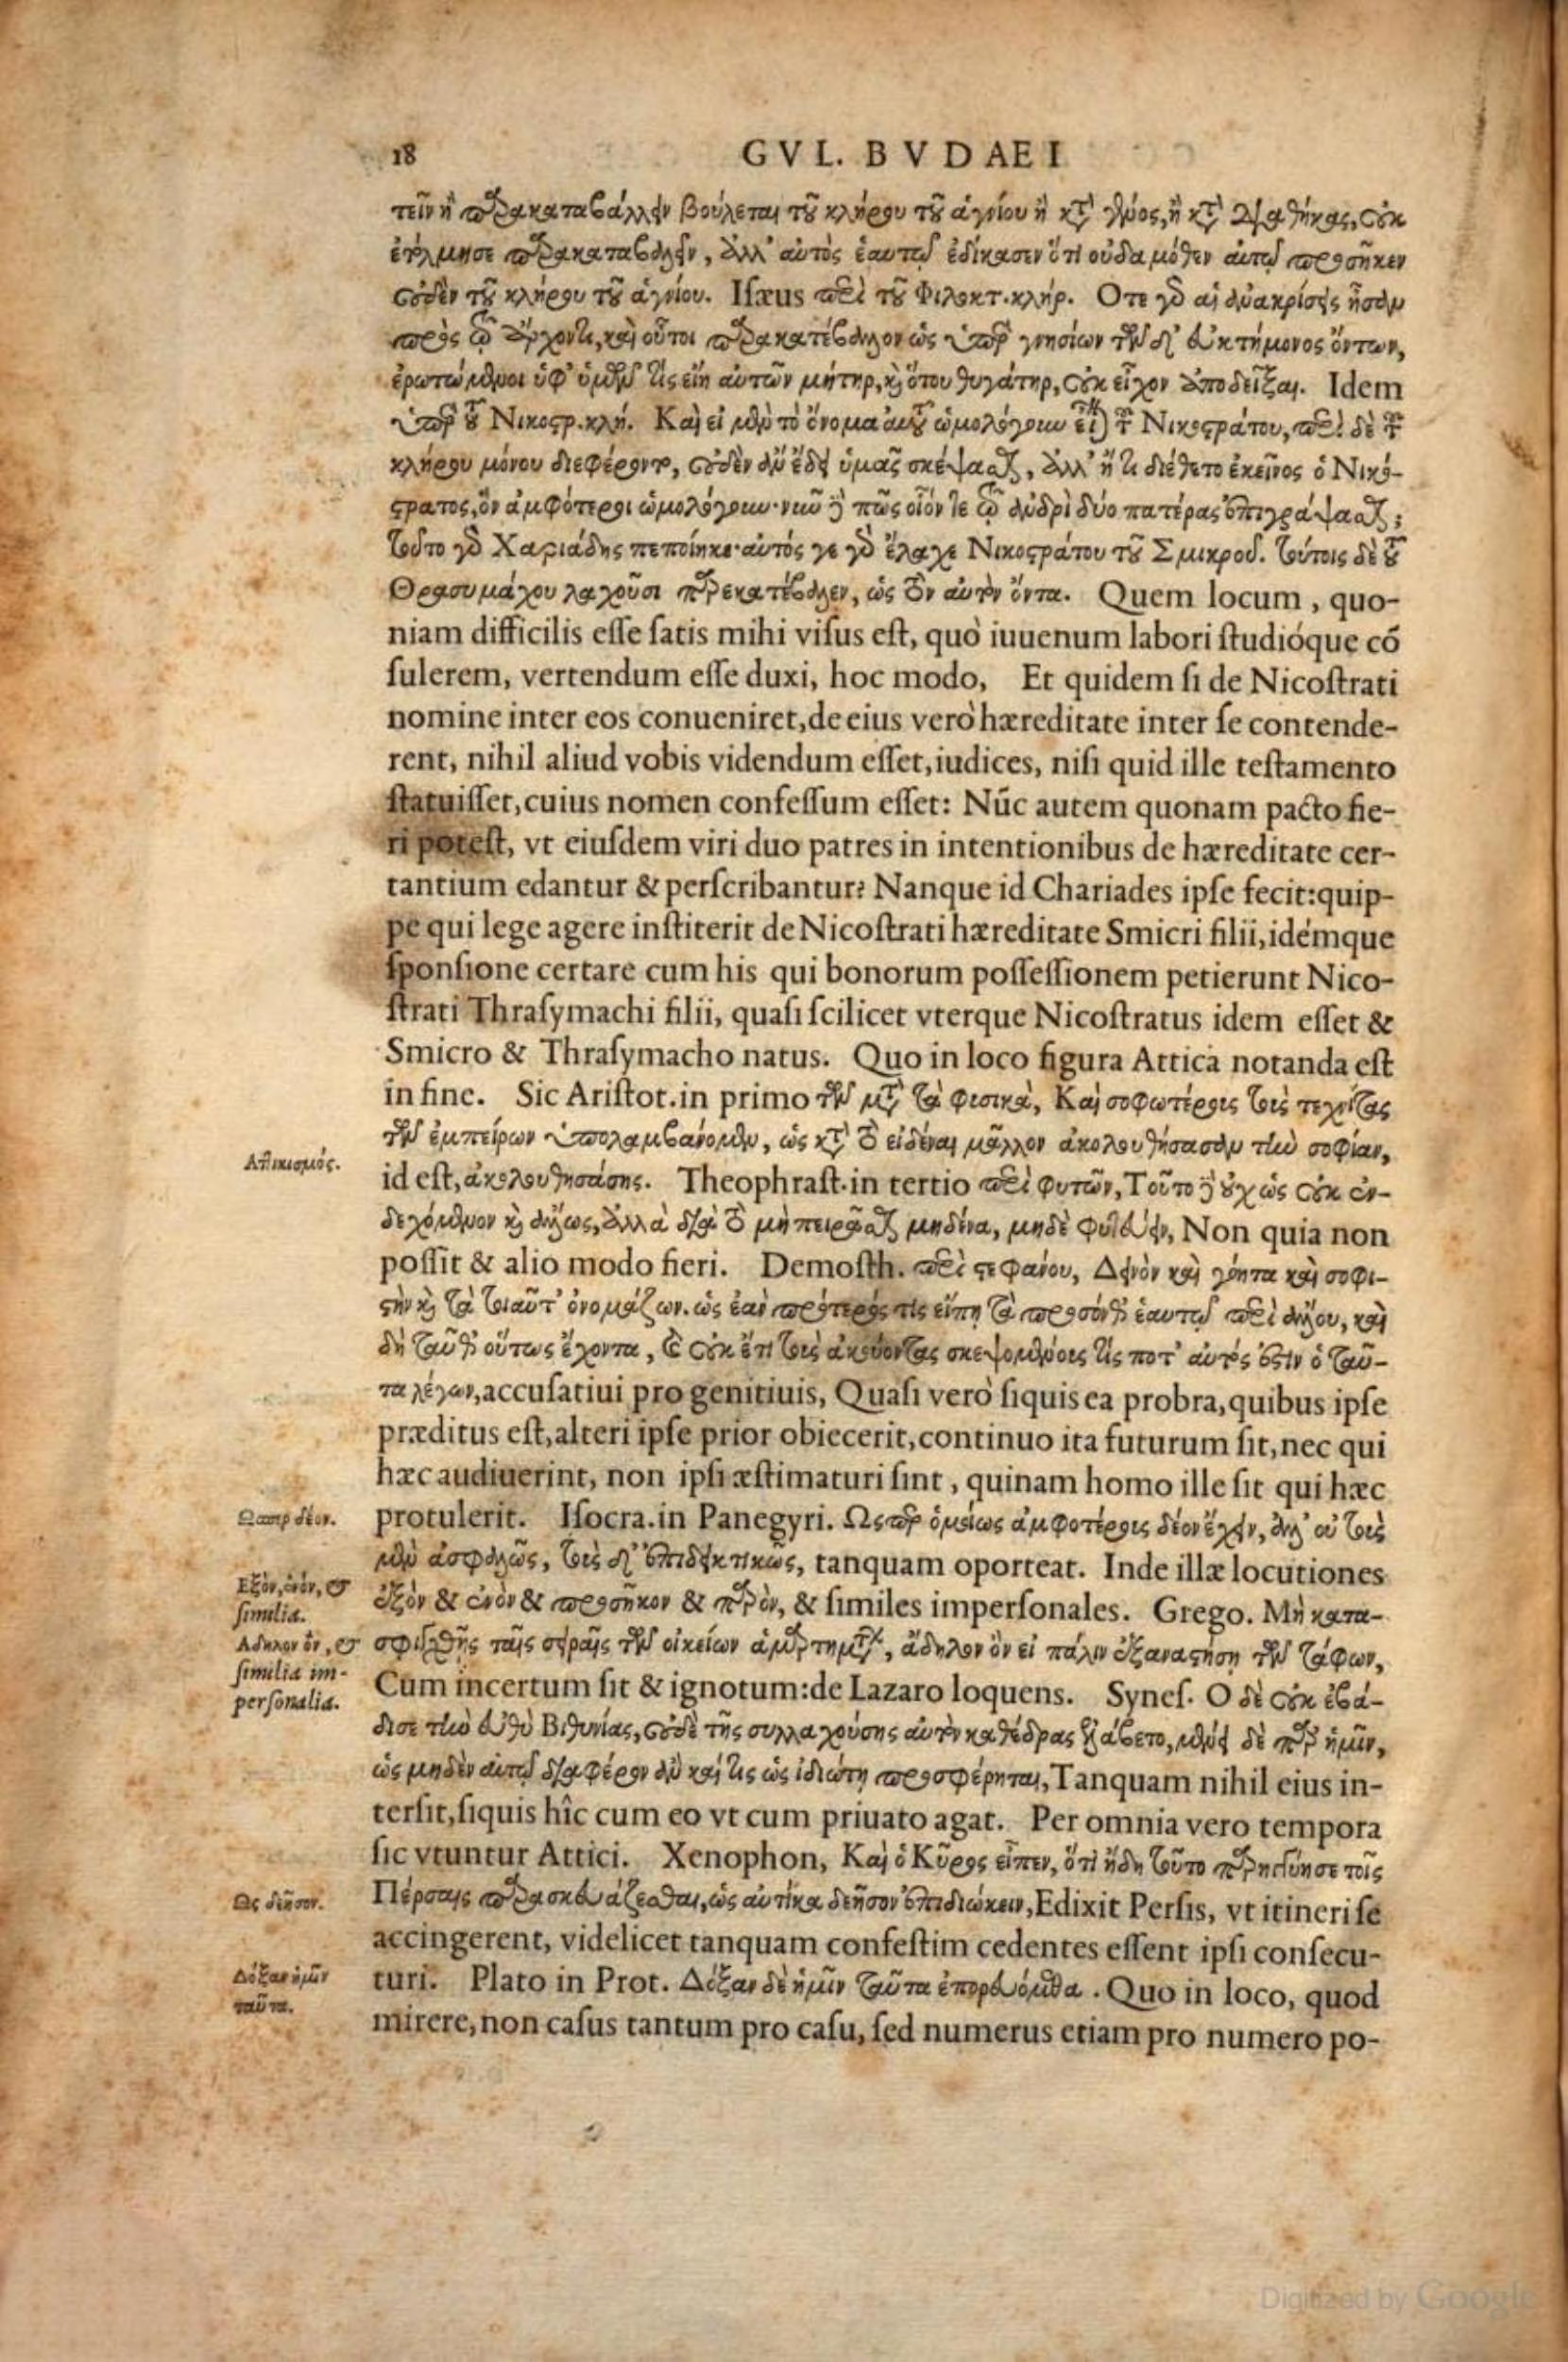 18 GVL. BVDAEI
τεῖν ἢ παρακαταβάλλειν βούλεται τοῦ κλήρου τοῦ ἁγνίου ἢ κατὰ γένος, ἢ κατὰ διαθήκας, οὐκ
ἐτόλμησε παρακαταβαλεῖν, ἀλλ' αὐτὸς ἑαυτῷ ἐδίκασεν ὅτι οὐδαμόθεν αὐτῷ προσῆκεν
οὐδὲν τοῦ κλήρου τοῦ ἁγνίου. Isæus περὶ τοῦ Φιλοκτ. κλήρ. Οτε γὰρ αἱ ἀνακρίσεις ἦσαν
πρὸς τῷ ἄρχοντι, καὶ οὗτοι παρακατέβαλον ὡς ὑπὲρ γνησίων τῶν δ' εὐκτήμονος ὄντων,
ἐρωτώμενοι ὑφ' ὑμῶν τίς εἴη αὐτῶν μήτηρ, καὶ ὅτου θυγάτηρ, οὐκ εἶχον ἀποδεῖξαι. Idem
ὑπὲρ τοῦ Νικοστρ. κλή. Καὶ εἰ μὲν τὸ ὄνομα αὐτοῦ ὡμολόγουν εἶναι τοῦ Νικοστράτου, περὶ δὲ τοῦ
κλήρου μόνου διεφέροντο, οὐδὲν ἂν ἔδει ὑμᾶς σκέψασθαι, ἀλλ' ἤ τι διέθετο ἐκεῖνος ὁ Νικό-
στρατος, ὃν ἀμφότεροι ὡμολόγουν· νῦν δὲ πῶς οἷόν τε τῷ ἀνδρὶ δύο πατέρας ἐπιγράψασθαι;
τοῦτο γὰρ Χαριάδης πεποίηκε· αὐτός γε γὰρ ἔλαχε Νικοστράτου τοῦ Σμικροῦ. τούτοις δὲ τοῦ
Θρασυμάχου λαχοῦσι παρεκατέβαλεν, ὡς τὸν αὐτὸν ὄντα. Quem locum, quo-
niam difficilis esse satis mihi visus est, quò iuuenum labori studióque cõ
sulerem, vertendum esse duxi, hoc modo, Et quidem si de Nicostrati
nomine inter eos conueniret, de eius verò hæreditate inter se contende-
rent, nihil aliud vobis videndum esset, iudices, nisi quid ille testamento
statuisset, cuius nomen confessum esset: Nūc autem quonam pacto fie-
ri potest, vt eiusdem viri duo patres in intentionibus de hæreditate cer-
tantium edantur & perscribantur? Nanque id Chariades ipse fecit: quip-
pe qui lege agere institerit de Nicostrati hæreditate Smicri filii, idémque
sponsione certare cum his qui bonorum possessionem petierunt Nico-
strati Thrasymachi filii, quasi scilicet vterque Nicostratus idem esset &
Smicro & Thrasymacho natus. Quo in loco figura Attica notanda est
in fine. Sic Aristot. in primo τῶν μετὰ τὰ φισικὰ, Καὶ σοφωτέροις τοὺς τεχνίτας
τῶν ἐμπείρων ὑπολαμβάνομεν, ὡς κατὰ τὸ εἰδέναι μᾶλλον ἀκολουθήσασαν τὴν σοφίαν,
Ατικισμός.
id est, ἀκολουθησάσης. Theophrast. in tertio περὶ φυτῶν, Τοῦτο δὲ οὐχ ὡς οὐκ ἐν-
δεχόμενον καὶ ἄλλως, ἀλλὰ διὰ τὸ μὴ πειρᾶσθαι μηδένα, μηδὲ φυτεύειν, Non quia non
possit & alio modo fieri. Demosth. περὶ στεφάνου, Δεινὸν καὶ γόητα καὶ σοφι-
στὴν καὶ τὰ τοιαῦτ' ὀνομάζων. ὡς ἐὰν πρότερός τις εἴπῃ τὰ προσόνθ' ἑαυτῷ περὶ ἄλλου, καὶ
δὴ ταῦθ' οὕτως ἔχοντα, καὶ οὐκ ἔτι τοὺς ἀκούοντας σκεψομένους τίς ποτ' αὐτός ἐστιν ὁ ταῦ-
τα λέγων, accusatiui pro genitiuis, Quasi verò siquis ea probra, quibus ipse
præditus est, alteri ipse prior obiecerit, continuo ita futurum sit, nec qui
hæc audiuerint, non ipsi æstimaturi sint, quinam homo ille sit qui hæc
Ωσπερ δέον.
protulerit. Isocra. in Panegyri. Ωσπερ ὁμοίως ἀμφοτέροις δέον ἔχειν, ἀλλ' οὐ τοῖς
μὲν ἀσφαλῶς, τοῖς δ' ἐπιδεικτικῶς, tanquam oporteat. Inde illæ locutiones
Εξὸν, ἐνὸν, &
similia.
ἐξὸν & ἐνὸν & προσῆκον & παρὸν, & similes impersonales. Grego. Μὴ κατα-
Αδηλον ὂν, &
similia im-
personalia.
σφιγχθῇς ταῖς σειραῖς τῶν οἰκείων ἁμαρτημάτων, ἄδηλον ὂν εἰ πάλιν ἐξαναστήσῃ τῶν τάφων,
Cum incertum sit & ignotum: de Lazaro loquens. Synes. Ο δὲ οὐκ ἐβά-
δισε τὴν εὐθὺ Βιθυνίας, οὐδὲ τῆς συλλαχούσης αὐτὸν καθέδρας ἐλάβετο, μένει δὲ παρ' ἡμῖν,
ὡς μηδὲν αὐτῷ διαφέρον ἂν καί τις ὡς ἰδιώτῃ προσφέρηται, Tanquam nihil eius in-
tersit, siquis hîc cum eo vt cum priuato agat. Per omnia vero tempora
sic vtuntur Attici. Xenophon, Καὶ ὁ Κῦρος εἶπεν, ὅτι ἤδη τοῦτο παρηγγύησε τοῖς
Ως δεῆσον.
Πέρσαις παρασκευάζεσθαι, ὡς αὐτίκα δεῆσον ἐπιδιώκειν, Edixit Persis, vt itineri se
accingerent, videlicet tanquam confestim cedentes essent ipsi consecu-
Δόξαν ἡμῖν
ταῦτα.
turi. Plato in Prot. Δόξαν δὲ ἡμῖν ταῦτα ἐπορευόμεθα. Quo in loco, quod
mirere, non casus tantum pro casu, sed numerus etiam pro numero po-
Digitized by Google